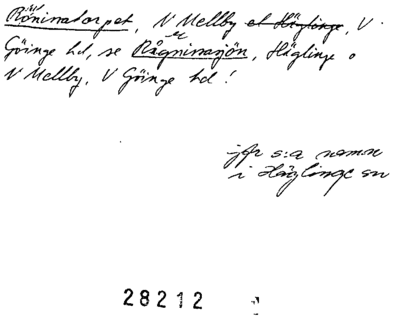 Röninatorpet, N Mellby el Häglinge, V
Göinge hd, se Rågninasjön, Häglinge o
N Mellby, V Göinge hd!
jfr s:a namn
i Häglinge sn
28212